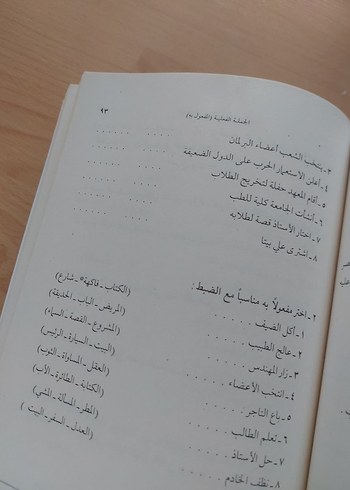 الجملة الفعلية (المفعول به) ٩٣
٣ـ ينتخب الشعب أعضاء البرلمان . . . . . . . . .
٤ـ أعلن الاستعمار الحرب على الدول الضعيفة . . . . . . . . .
٥ـ أقام المعهد حفلة لتخريج الطلاب . . . . . . . . .
٦ـ أنشأت الجامعة كلية للطب . . . . . . . . .
٧ـ اختار الأستاذ قصة لطلابه . . . . . . . . .
٨ـ اشترى علي بيتا . . . . . . . . .
٢ـ اختر مفعولاً به مناسباً مع الضبط :
١ـ أكل الضيف . . . . . (الكتاب ـ فاكهة* ـ شارع)
٢ـ عالج الطبيب . . . . . (المريض ـ الباب ـ الحديقة)
٣ـ زار المهندس . . . . . (المشروع ـ القصة ـ السماء)
٤ـ انتخب الأعضاء . . . . . (البيت ـ السيارة ـ الرئيس)
٥ـ باع التاجر . . . . . (العقل ـ المساواة ـ الثوب)
٦ـ تعلم الطالب . . . . . (الكتابة ـ الطائرة ـ الأب)
٧ـ حل الأستاذ . . . . . (المطر ـ المسألة ـ المشي)
٨ـ نظف الخادم . . . . . (العدل ـ السفر ـ البيت)